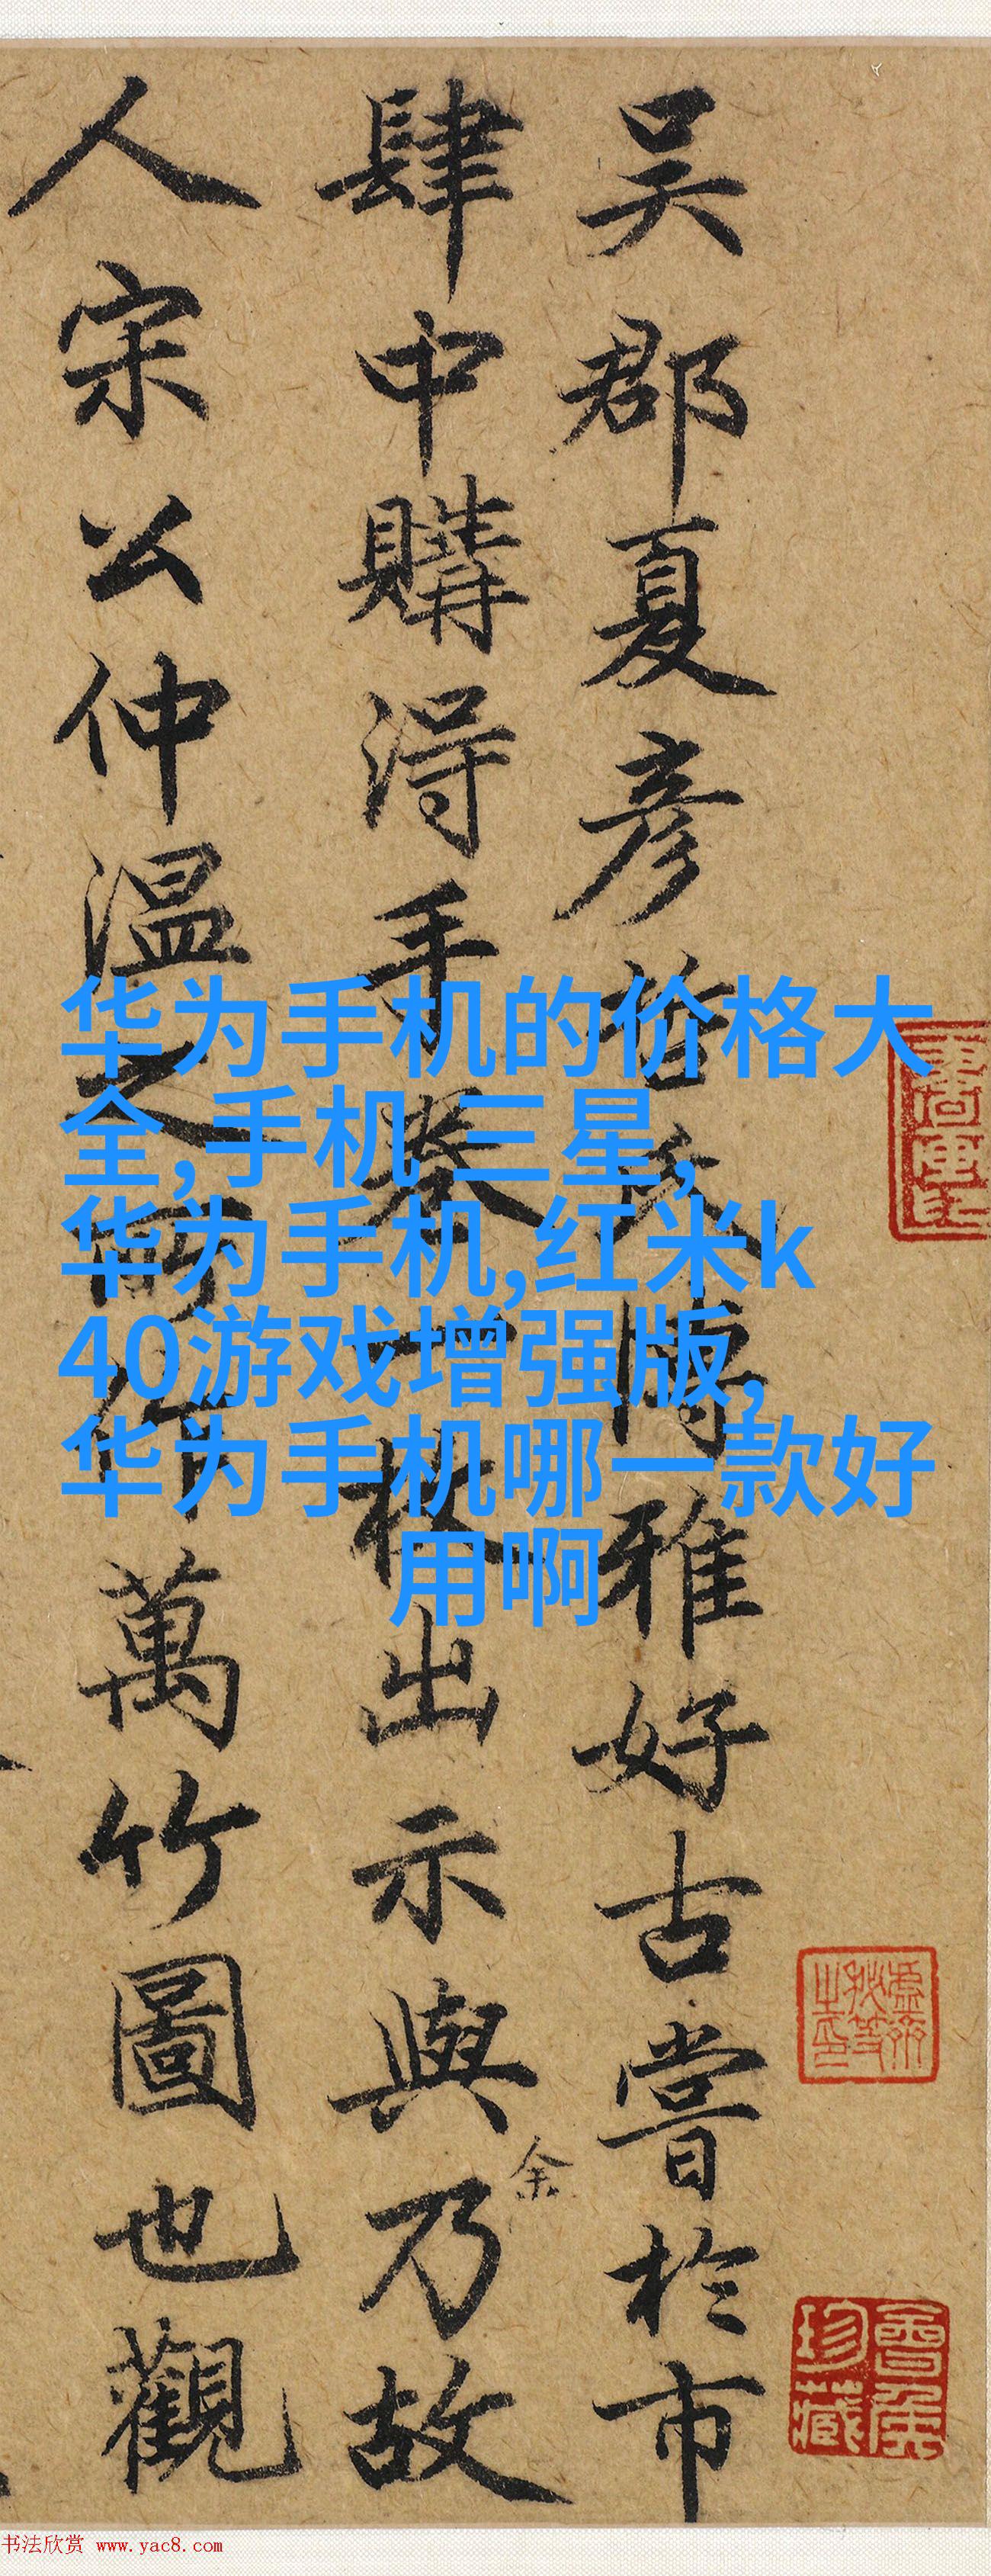 吴郡夏彦哲氏博雅好古嘗於市
肆中購得手卷一枚出示與余乃故
人宋公仲温之所作萬竹圖也觀
华为手机的价格大
全,手机 三星,
华为手机,红米k
40游戏增强版,
华为手机哪一款好
用啊
珍藏
书法欣赏 www.yac8.com